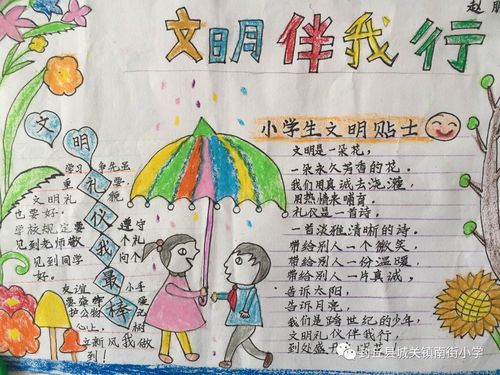 赵
文明伴我行
小学生文明贴士
文明是一朵花,
一朵永久芳香的花。
我们用真诚去浇灌,
用热情来哺育。
礼仪是一首诗,
一首淡雅清晰的诗。
带给别人一个微笑,
带给别人一份温暖,
带给别人一片真诚。
告诉太阳,
告诉月亮,
我们是跨世纪的少年,
文明礼仪伴我行,
到处盛开
文明
礼仪我最棒
学习争先显
重要貌
文明礼
也要好。
学校规定要遵守
见到老师敬个礼
见到同学问个
好。
友谊小手
公物
心上,树
文明新风我做
到!
封丘县城关镇南街小学